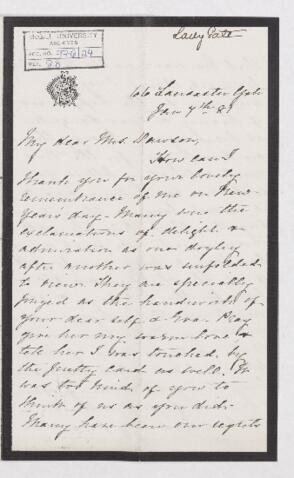 McGILL UNIVERSITY
ARCHIVES
ACC. NO.
REF.
Lady Tate
66 Lancaster Gate
Jan 7th
My dear Mrs. Dawson,
How can I
thank you for your lovely
remembrance of me on New
Years day. Many were the
exclamations of delight &
admiration as one doyley
after another was unfolded
to view. They are specially
prized as the handwork of
your dear self & Eva. Pray
give her my warm love &
tell her I was touched by
the pretty card as well. It
was too kind of you to
think of us as you did.
Many have been our regrets